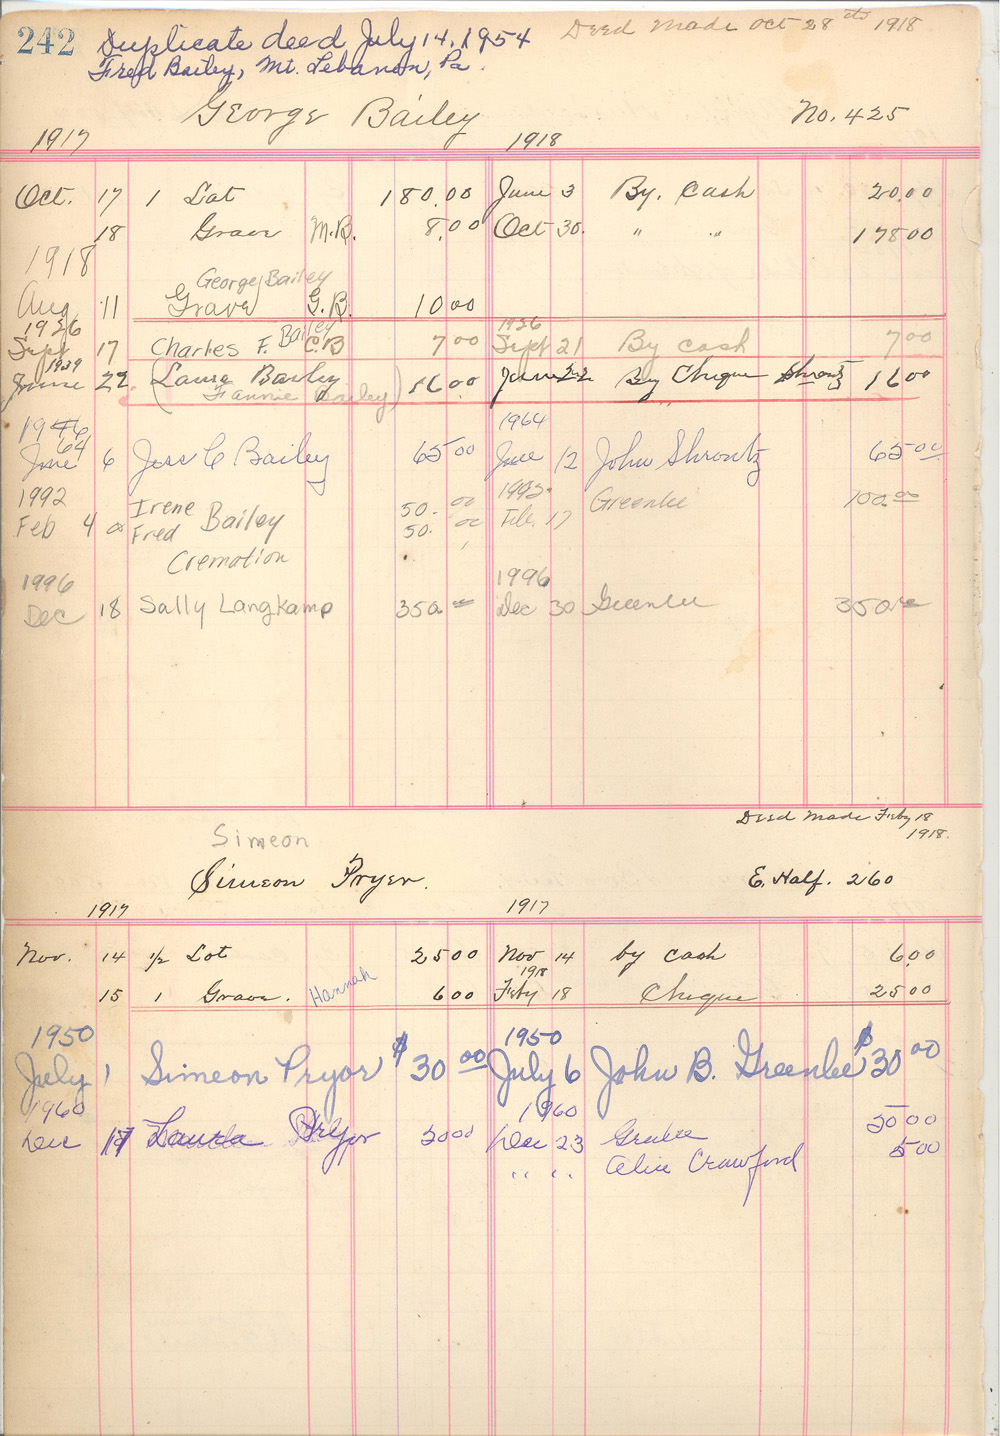 242 Duplicate deed July 14, 1954 Deed Made Oct 28 1918
Fred Bailey, Mt. Lebanon, Pa.
George Bailey No. 425
1917 1918
Oct. 17 1 Lot 180.00 June 3 By. Cash 20.00
18 Grave M.B. 8.00 Oct 30. " " 178 00
1918
George Bailey
Aug 11 Grave G.B. 10 00
1926 1926
Sept 17 Charles F. Bailey C.B 7 00 Sept 21 By cash 7 00
1939
June 22 (Laura Bailey 16.00 June 22 By Cheque Shrontz 16 00
Fannie Bailey)
1946 1964
64
June 6 Jess C Bailey 65 00 June 12 John Shrontz 65 00
1992 1992
Feb 4 Irene Bailey 50. 00 Feb 17 Greenlee 100.00
Fred 50. 00
Cremation
1996 1996
Dec 18 Sally Langkamp 350. Dec 30 Greenlee 350
Deed Made Feby 18
1918.
Simeon
Simeon Pryer. E. Half. 260
1917 1917
Nov. 14 1/2 Lot 25 00 Nov 14 by cash 6 00
1918
15 1 Grave. Hannah 6 00 Feby 18 Cheque 25 00
1950 1950
July 1 Simeon Pryor $30 00 July 6 John B. Greenlee $30 00
1960 1960
Dec 17 Laura Pryor 50 00 Dec 23 50 00
" " Alice Crawford 5 00